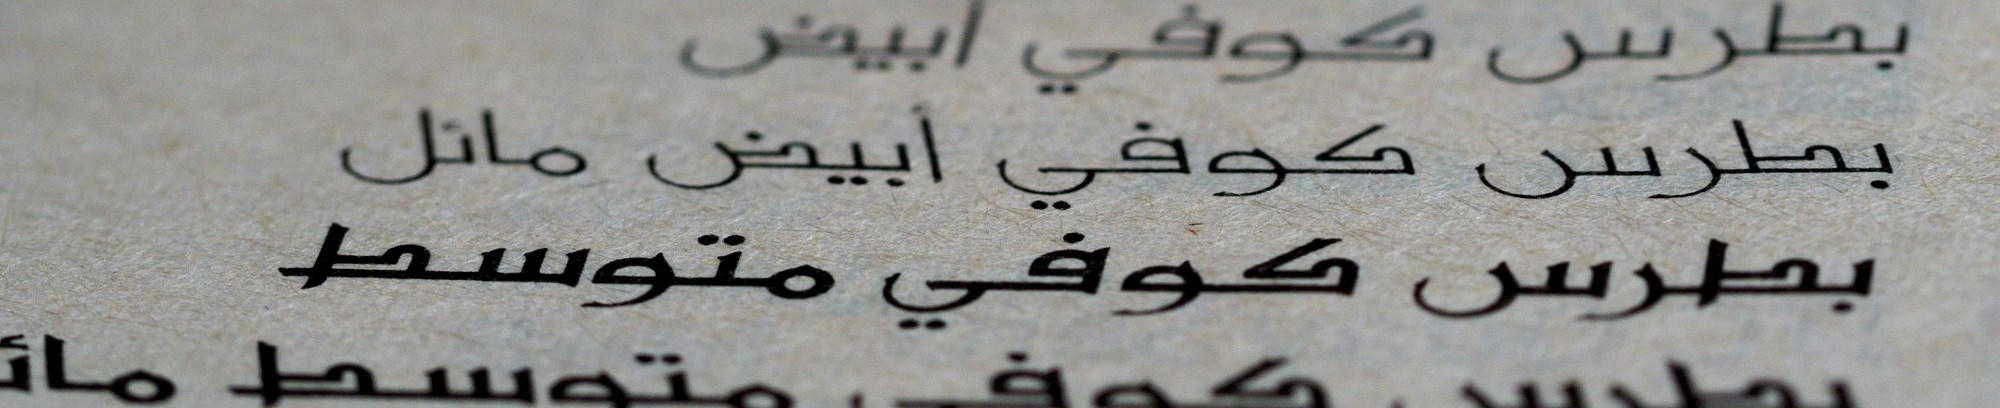 بطرس كوفي أبيض
بطرس كوفي أبيض مائل
بطرس كوفي متوسط
بطرس كوفي متوسط مائل